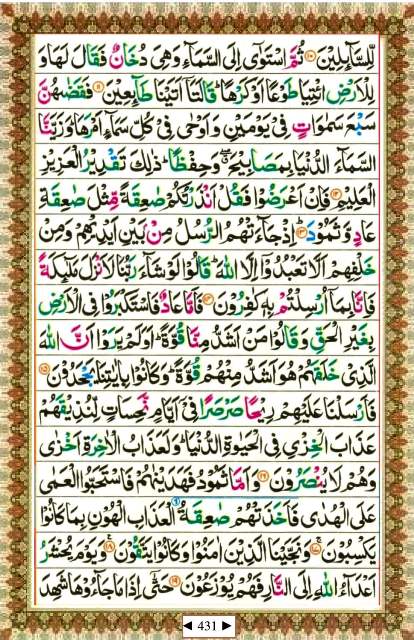 لِّلسَّآئِلِيْنَ ۝۱۰ ثُمَّ اسْتَوٰٓى اِلَى السَّمَآءِ وَهِيَ دُخَانٌ فَقَالَ لَهَا وَ
لِلْاَرْضِ ائْتِيَا طَوْعًا اَوْ كَرْهًا ؕ قَالَتَاۤ اَتَيْنَا طَآئِعِيْنَ ۝۱۱ فَقَضٰىهُنَّ
سَبْعَ سَمٰوَاتٍ فِيْ يَوْمَيْنِ وَاَوْحٰى فِيْ كُلِّ سَمَآءٍ اَمْرَهَا ؕ وَزَيَّنَّا
السَّمَآءَ الدُّنْيَا بِمَصَابِيْحَ ۖ وَحِفْظًا ؕ ذٰلِكَ تَقْدِيْرُ الْعَزِيْزِ
الْعَلِيْمِ ۝۱۲ فَاِنْ اَعْرَضُوْا فَقُلْ اَنْذَرْتُكُمْ صٰعِقَةً مِّثْلَ صٰعِقَةِ
عَادٍ وَّثَمُوْدَ ۝۱۳ اِذْ جَآءَتْهُمُ الرُّسُلُ مِنْۢ بَيْنِ اَيْدِيْهِمْ وَمِنْ
خَلْفِهِمْ اَلَّا تَعْبُدُوْۤا اِلَّا اللّٰهَ ؕ قَالُوْا لَوْ شَآءَ رَبُّنَا لَاَنْزَلَ مَلٰٓئِكَةً
فَاِنَّا بِمَاۤ اُرْسِلْتُمْ بِهٖ كٰفِرُوْنَ ۝۱۴ فَاَمَّا عَادٌ فَاسْتَكْبَرُوْا فِي الْاَرْضِ
بِغَيْرِ الْحَقِّ وَقَالُوْا مَنْ اَشَدُّ مِنَّا قُوَّةً ؕ اَوَلَمْ يَرَوْا اَنَّ اللّٰهَ
الَّذِيْ خَلَقَهُمْ هُوَ اَشَدُّ مِنْهُمْ قُوَّةً ؕ وَكَانُوْا بِاٰيٰتِنَا يَجْحَدُوْنَ ۝۱۵
فَاَرْسَلْنَا عَلَيْهِمْ رِيْحًا صَرْصَرًا فِيْۤ اَيَّامٍ نَّحِسَاتٍ لِّنُذِيْقَهُمْ
عَذَابَ الْخِزْيِ فِي الْحَيٰوةِ الدُّنْيَا ؕ وَلَعَذَابُ الْاٰخِرَةِ اَخْزٰى
وَهُمْ لَا يُنْصَرُوْنَ ۝۱۶ وَاَمَّا ثَمُوْدُ فَهَدَيْنٰهُمْ فَاسْتَحَبُّوا الْعَمٰى
عَلَى الْهُدٰى فَاَخَذَتْهُمْ صٰعِقَةُ الْعَذَابِ الْهُوْنِ بِمَا كَانُوْا
يَكْسِبُوْنَ ۝۱۷ وَنَجَّيْنَا الَّذِيْنَ اٰمَنُوْا وَكَانُوْا يَتَّقُوْنَ ۝۱۸ وَيَوْمَ يُحْشَرُ
اَعْدَآءُ اللّٰهِ اِلَى النَّارِ فَهُمْ يُوْزَعُوْنَ ۝۱۹ حَتّٰۤى اِذَا مَا جَآءُوْهَا شَهِدَ
◄ 431 ►